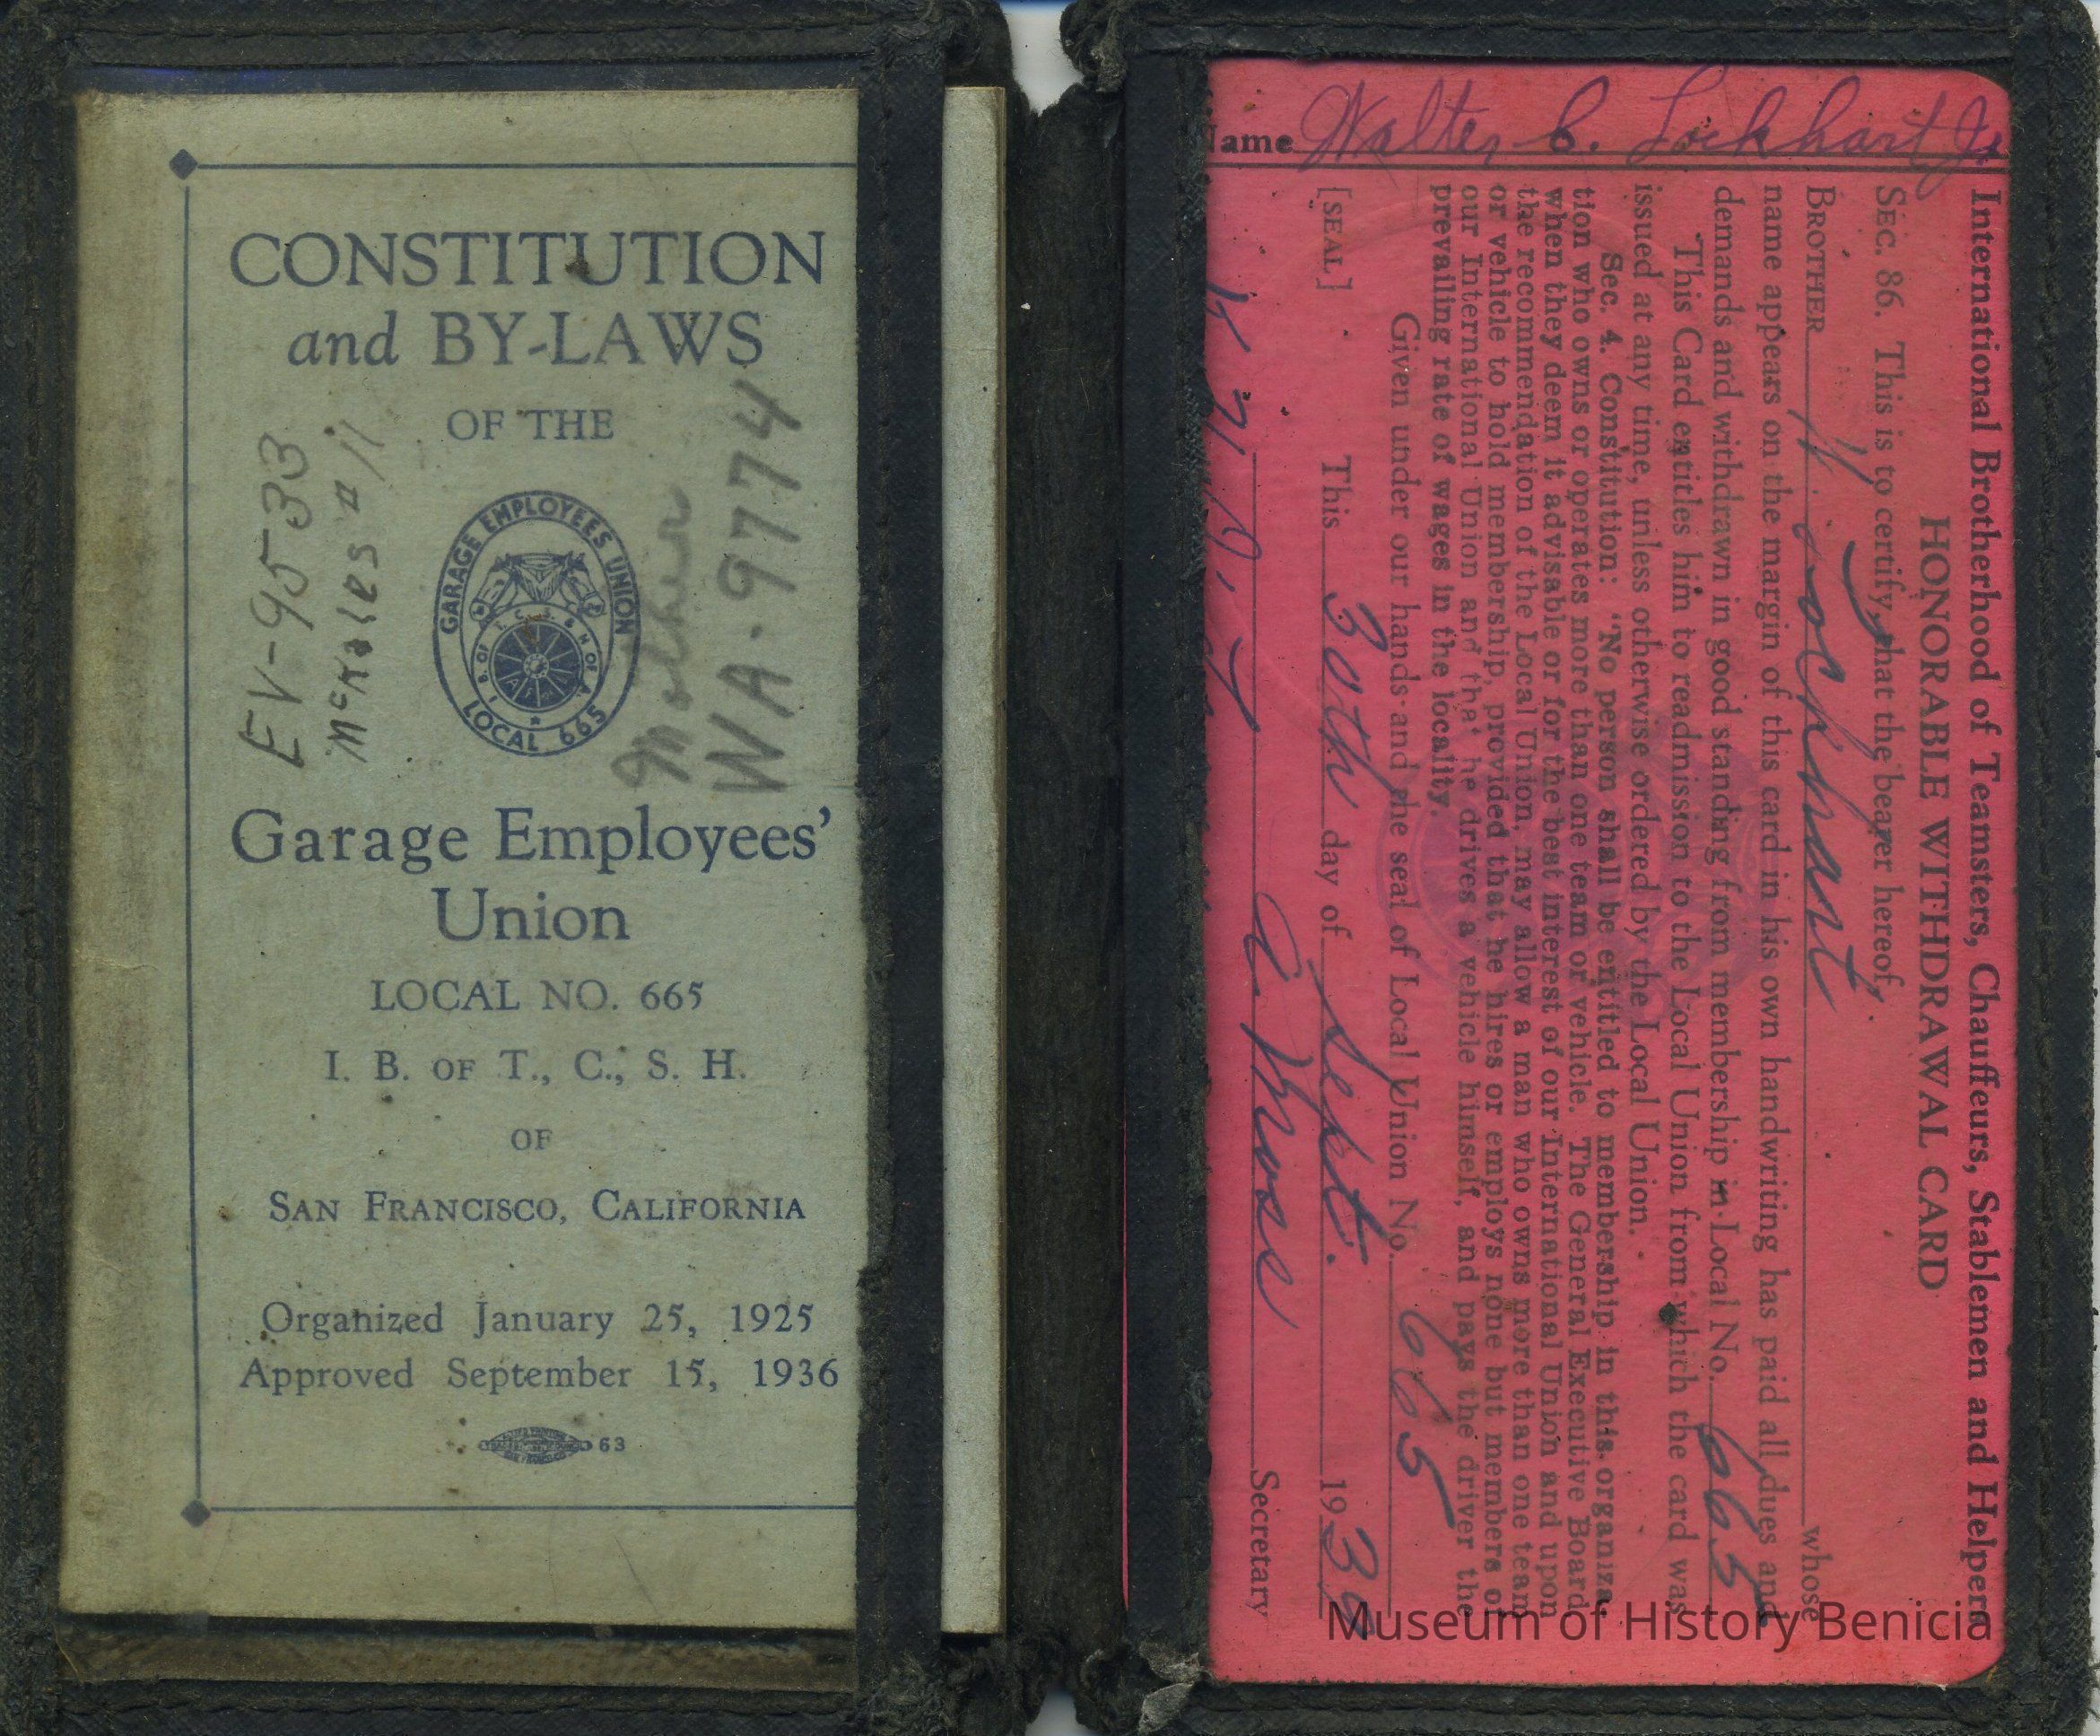 CONSTITUTION
and BY-LAWS
OF THE
GARAGE EMPLOYEES UNION
I. B. OF T. C. S. & H OF A
LOCAL 665
Garage Employees'
Union
LOCAL NO. 665
I. B. OF T., C., S. H.
OF
SAN FRANCISCO, CALIFORNIA
Organized January 25, 1925
Approved September 15, 1936
63
EV-9533
Mother
WA-9774
Name Walter C. Lockhart Jr
International Brotherhood of Teamsters, Chauffeurs, Stablemen and Helpers
HONORABLE WITHDRAWAL CARD
SEC. 86. This is to certify that the bearer hereof,
BROTHER Lockhart whose
name appears on the margin of this card in his own handwriting has paid all dues and
demands and withdrawn in good standing from membership in Local No. 665
This Card entitles him to readmission to the Local Union from which the card was
issued at any time, unless otherwise ordered by the Local Union.
Sec. 4. Constitution: "No person shall be entitled to membership in this organiza-
tion who owns or operates more than one team or vehicle. The General Executive Board
when they deem it advisable or for the best interest of our International Union and upon
the recommendation of the Local Union, may allow a man who owns more than one team
or vehicle to hold membership, provided that he hires or employs none but members of
our International Union and that he drives a vehicle himself, and pays the driver the
prevailing rate of wages in the locality.
Given under our hands and the seal of Local Union No. 665
[SEAL] This 30th day of Sept. 1939
Secretary
Museum of History Benicia